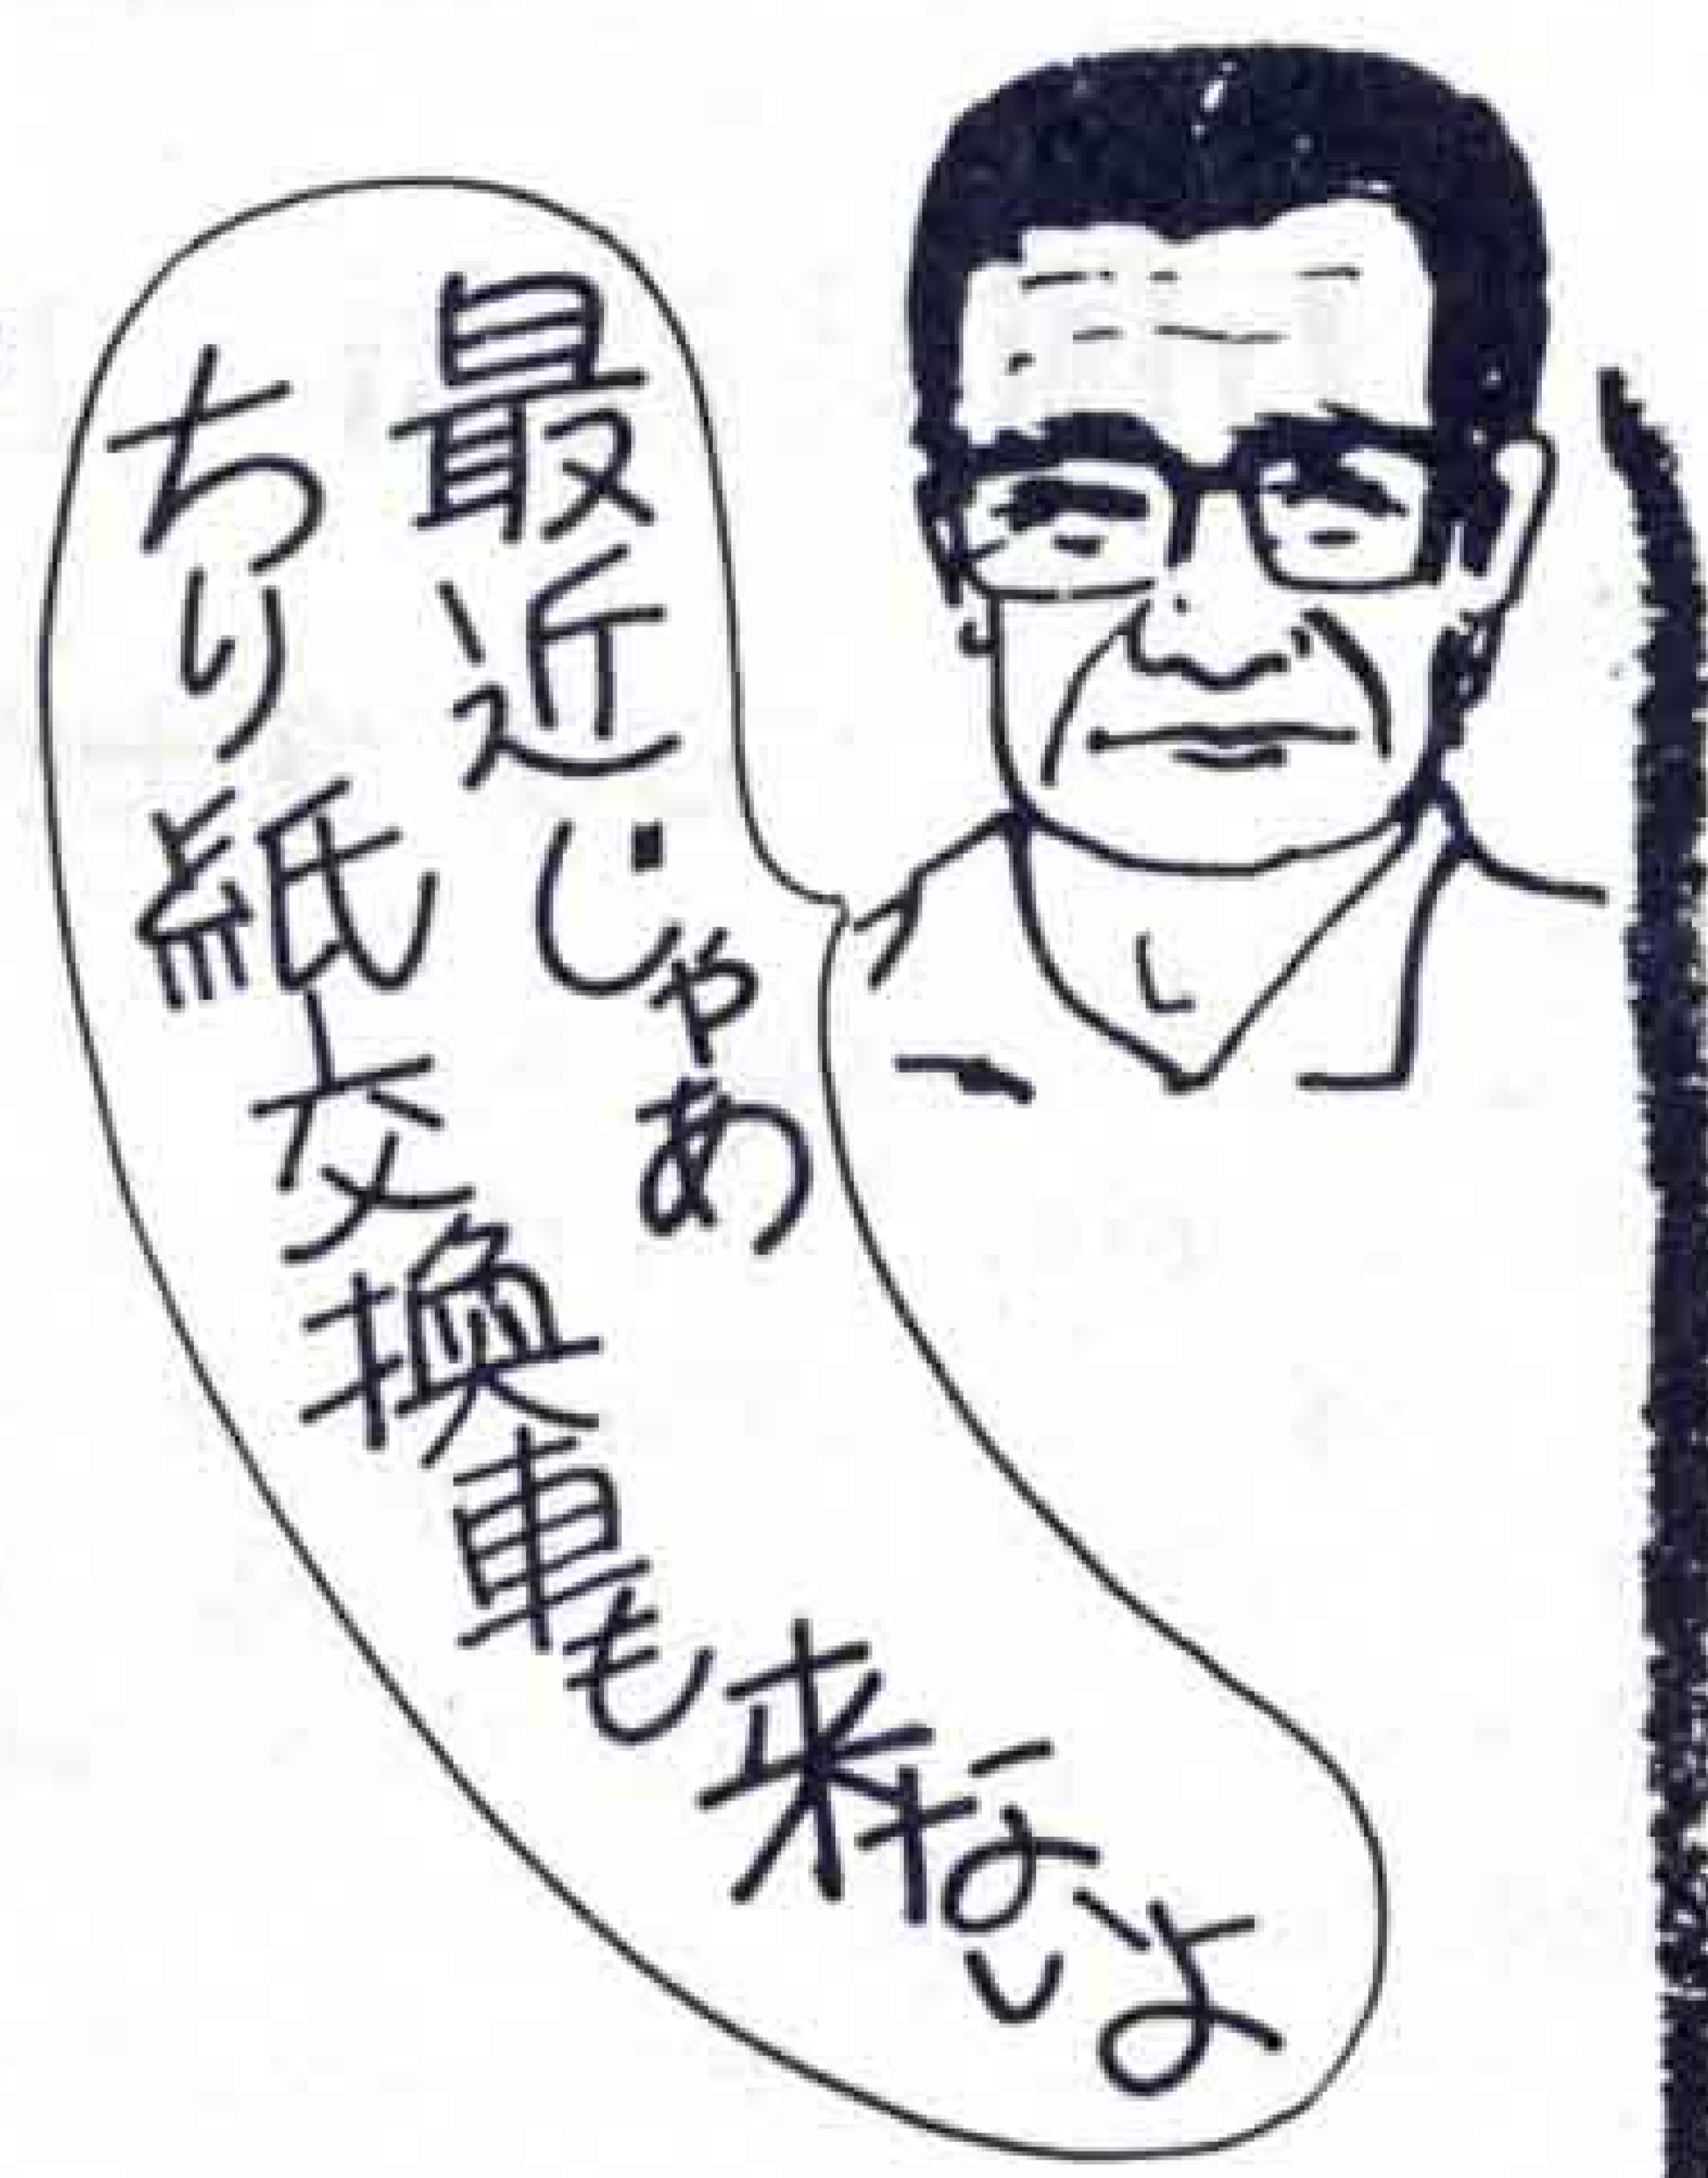 最近じゃあ
ちり紙交換車も来ないよ